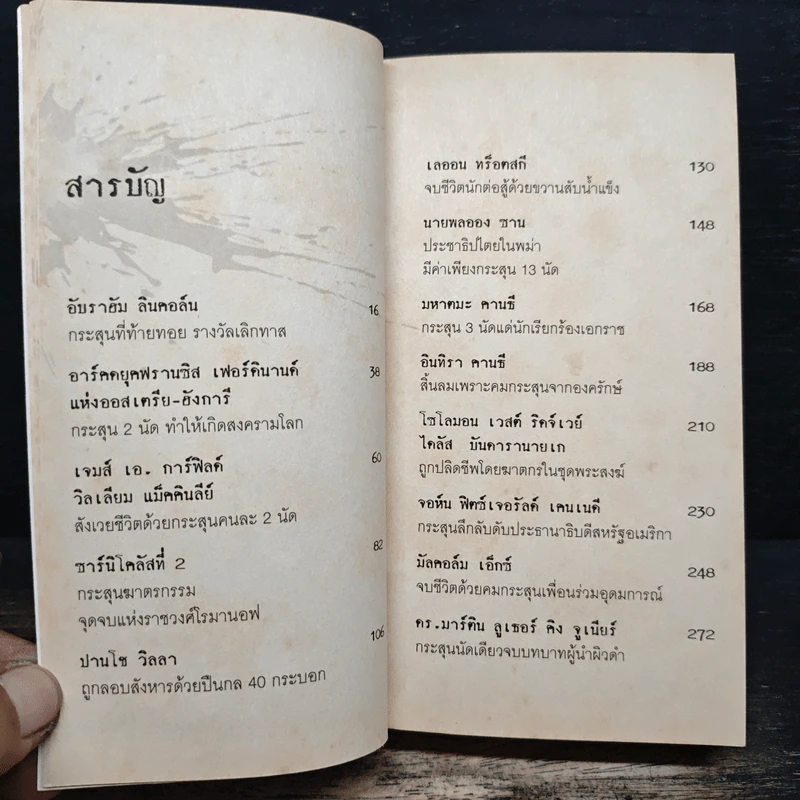 สารบัญ
อับราฮัม ลินคอล์น 16
กระสุนที่ท้ายทอย รางวัลเลิกทาส
อาร์คดยุคฟรานซิส เฟอร์ดินานด์ 38
แห่งออสเตรีย-ฮังการี
กระสุน 2 นัด ทำให้เกิดสงครามโลก
เจมส์ เอ. การ์ฟิลด์ 60
วิลเลียม แม็คคินลีย์
สังเวยชีวิตด้วยกระสุนคนละ 2 นัด
ซาร์นิโคลัสที่ 2 82
กระสุนฆาตกรรม
จุดจบแห่งราชวงศ์โรมานอฟ
ปานโช วิลลา 106
ถูกลอบสังหารด้วยปืนกล 40 กระบอก
เลออน ทร็อตสกี 130
จบชีวิตนักต่อสู้ด้วยขวานสับน้ำแข็ง
นายพลออง ซาน 148
ประชาธิปไตยในพม่า
มีค่าเพียงกระสุน 13 นัด
มหาตมะ คานธี 168
กระสุน 3 นัดแด่นักเรียกร้องเอกราช
อินทิรา คานธี 188
สิ้นลมเพราะคมกระสุนจากองครักษ์
โซโลมอน เวสต์ ริดจ์เวย์ 210
ไดลัส บันดารานายเก
ถูกปลิดชีพโดยฆาตกรในชุดพระสงฆ์
จอห์น ฟิตซ์เจอรัลด์ เคนเนดี 230
กระสุนลึกลับดับประธานาธิบดีสหรัฐอเมริกา
มัลคอล์ม เอ็กซ์ 248
จบชีวิตด้วยคมกระสุนเพื่อนร่วมอุดมการณ์
ดร.มาร์ติน ลูเธอร์ คิง จูเนียร์ 272
กระสุนนัดเดียวจบบทบาทผู้นำผิวดำ